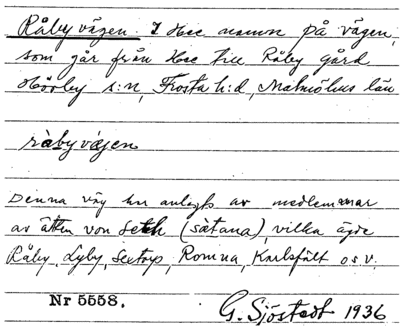 Råbyvägen I Hee namn på vägen,
som går från Hee till Råby gård
Hörby s:n, Frosta h:d, Malmöhus län
ràbyvägen
Denna väg har anlagts av medlemmar
av ätten von Seth (sàtana), vilka ägde
Råby, Lyby, Sextorp, Romna, Karlsfält o.s.v.
Nr 5558.
G. Sjöstedt 1936